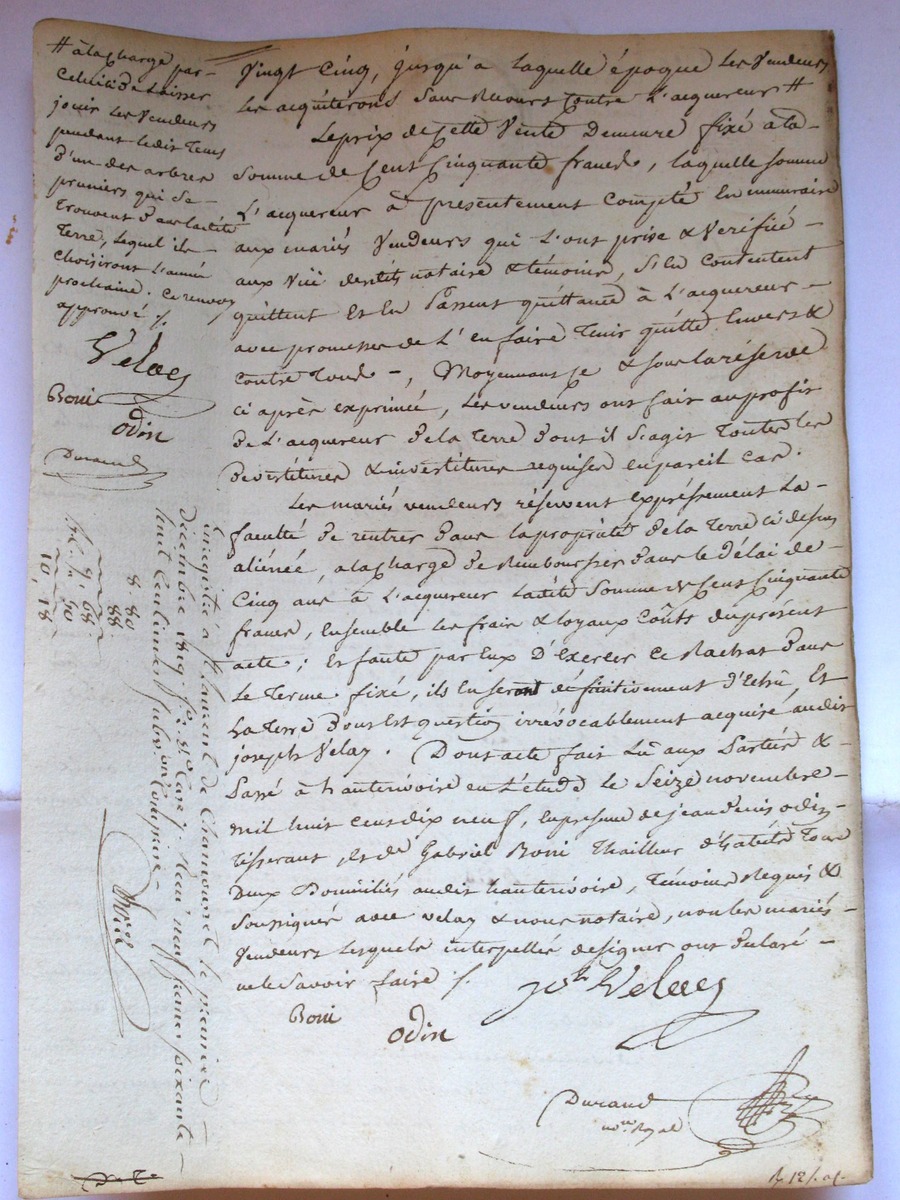 # à la charge par
celui ci de Laisser
jouir Les Vendeurs
pendant ledit Tems
d'un des arbres
pruniers qui se
Trouvent dans ladite
Terre, Lequel ils
choisiront l'année
prochaine. Ce renvoy
approuvé /.
Velay
Boni
odin
Durand
Vingt Cinq, jusqu'a Laquelle époque Les Vendeurs
Les acquiteront Sans Recours Contre L'acquereur #
Le prix de Cette Vente Demeure fixé a la
Somme de Cent Cinquante francs, laquelle Somme
L'acquereur a presentement Compté En numeraire
aux mariés Vendeurs qui L'ont prise & Verifiée
aux Vüe desdits notaire & témoins, S'en Contentent
quittent Et En Passent quittance à L'acquereur
avec promesse de L'en faire Tenir quitte Envers &
Contre Tous, Moyennant Ce & Sous La réserve
ci après exprimée, Les vendeurs ont fait au profit
de L'acquereur de la Terre dont il S'agit Toutes les
devestitures & investitures requises en pareil cas.
Les mariés vendeurs réservent Expréssement La
faculté de rentrer dans la propriété de la Terre ci dessus
aliénée, a la charge de Rembourser dans le délai de
Cinq ans à L'acquereur Ladite Somme de Cent Cinquante
francs, Ensemble les frais & loyaux Coûts du présent
acte; Et faute par Eux D'Exercer Ce Rachat dans
Le Terme fixé, ils En seront définitivement déchû Et
La Terre dont Est question irrévocablement acquise audit
joseph Velay. Dont acte fait Lû aux Parties &
Passé à hauterivoire en L'étude Le Seize novembre
mil huit cent dix neuf, En présence de jean denis odin
Tisserant, et de Gabriel Boni Thailleur d'habits Tous
Deux Domiciliés audit hauterivoire, Témoins Requis &
Soussignés avec velay & nous notaire, non les mariés
Vendeurs Lesquels interpellés de signer ont déclaré
ne le Savoir faire /.
jph Velay
Boni
odin
Durand
nore Royal
Enregistré a St Laurent de Chamousset le premier
décembre 1819 fo Reçu neuf francs soixante
huit Centimes subvon Comprise
8. 80
88
9. 68
50
10, 18